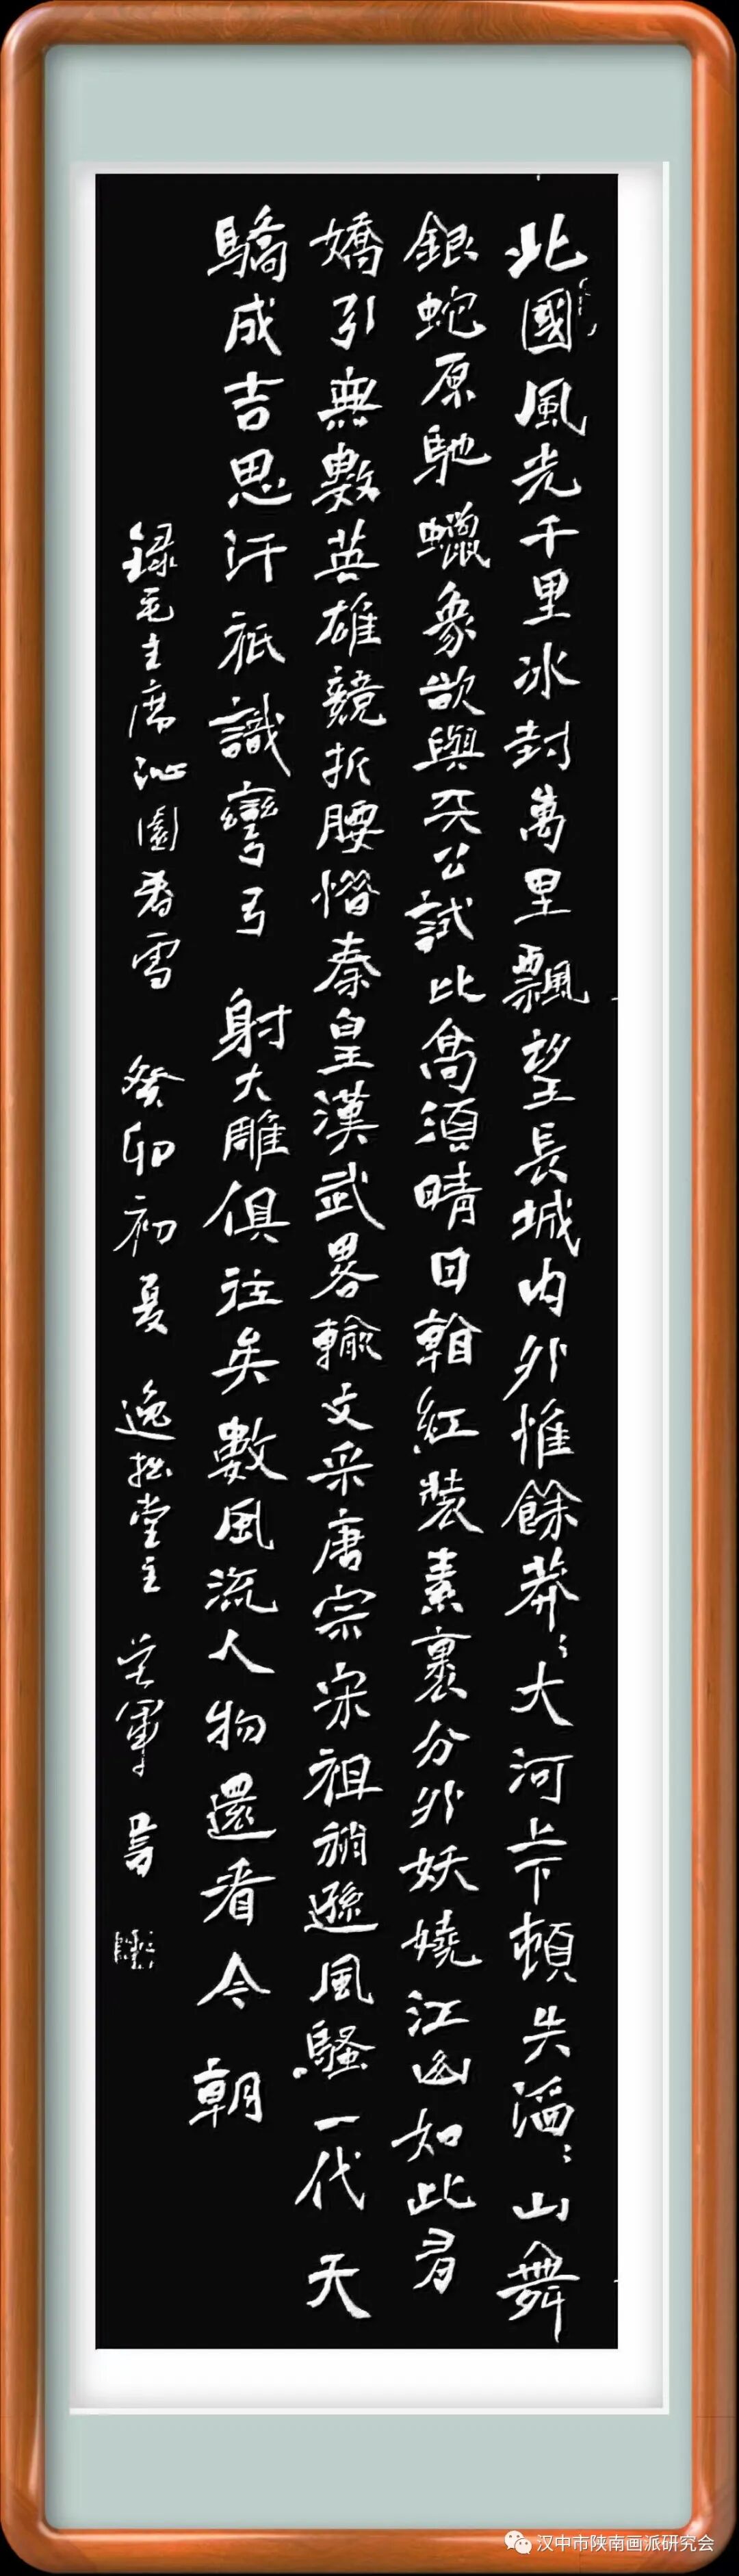 北國風光千里冰封萬里飄望長城内外惟餘莽〻大河上下頓失滔〻山舞
銀蛇原馳蠟象欲與天公試比高須晴日看紅裝素裹分外妖嬈江山如此多
嬌引無數英雄競折腰惜秦皇漢武畧輸文采唐宗宋祖稍遜風騷一代天
驕成吉思汗祇識彎弓 射大雕俱往矣數風流人物還看今朝
録毛主席沁園春雪 癸卯初夏 逸拙堂主 軍書
汉中市陕南画派研究会